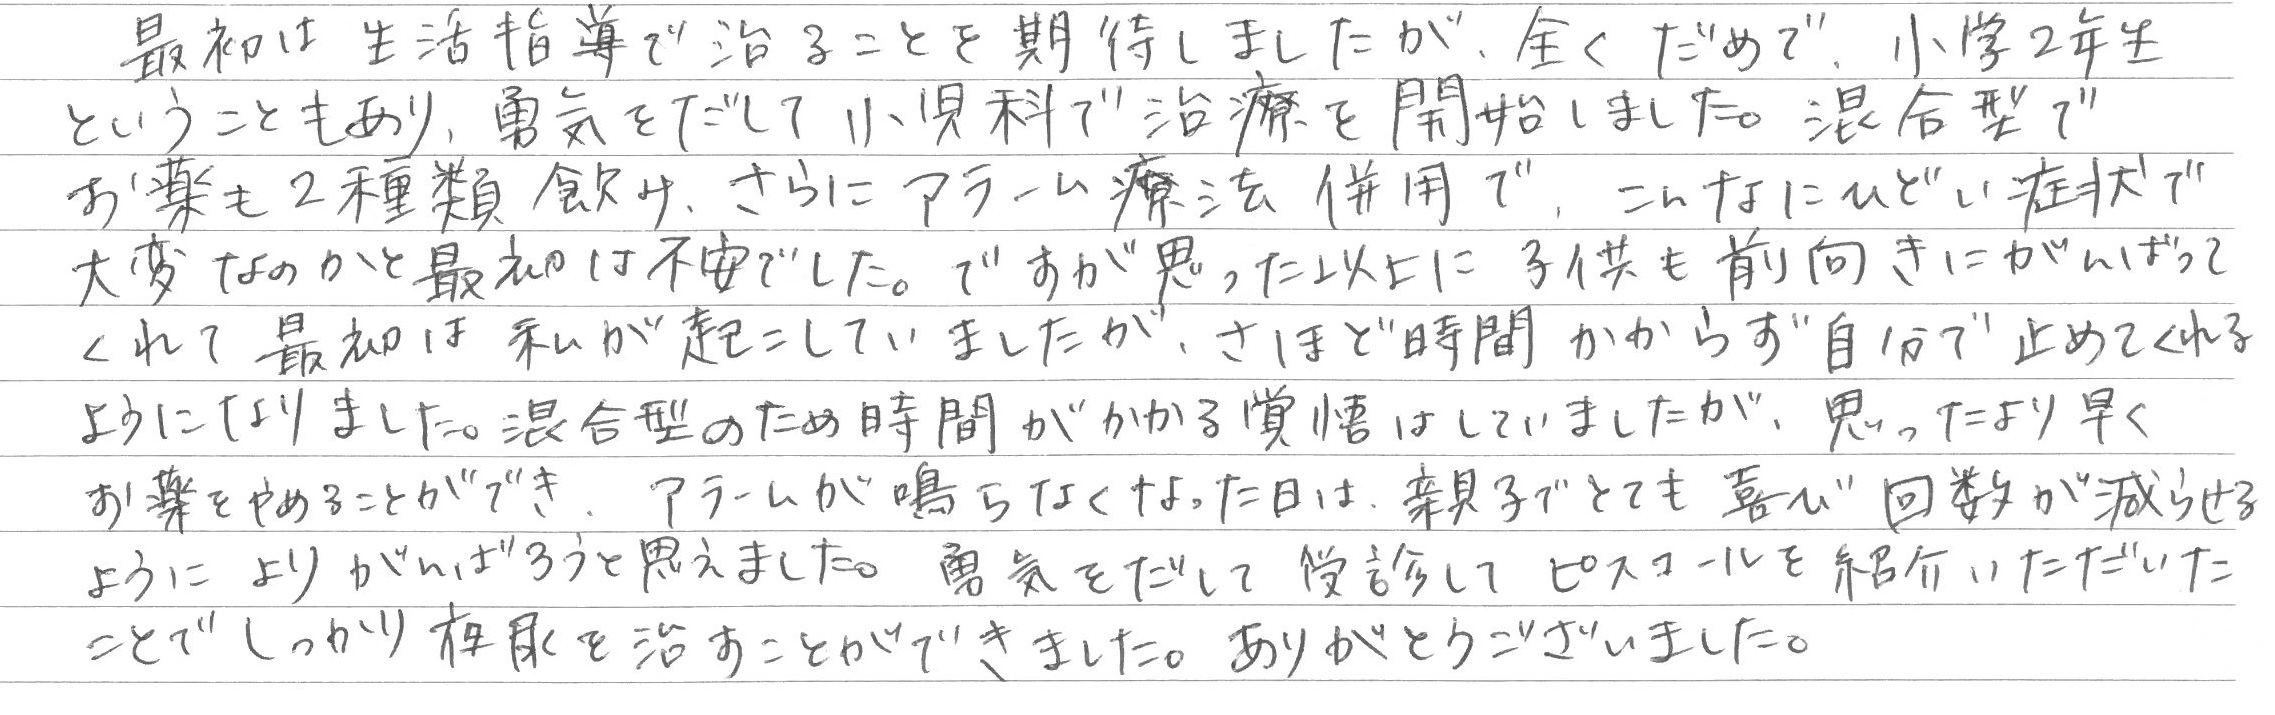 最初は生活指導で治ることを期待しましたが、全くだめで、小学2年生
ということもあり、勇気をだして小児科で治療を開始しました。混合型で
お薬も2種類飲み、さらにアラーム療法併用で、こんなにひどい症状で
大変なのかと最初は不安でした。ですが思った以上に子供も前向きにがんばって
くれて最初は私が起こしていましたが、さほど時間かからず自分で止めてくれる
ようになりました。混合型のため時間がかかる覚悟はしていましたが、思ったより早く
お薬をやめることができ、アラームが鳴らなくなった日は、親子でとても喜び回数が減らせる
ようによりがんばろうと思えました。勇気をだして受診してピスコールを紹介いただいた
ことでしっかり夜尿を治すことができました。ありがとうございました。